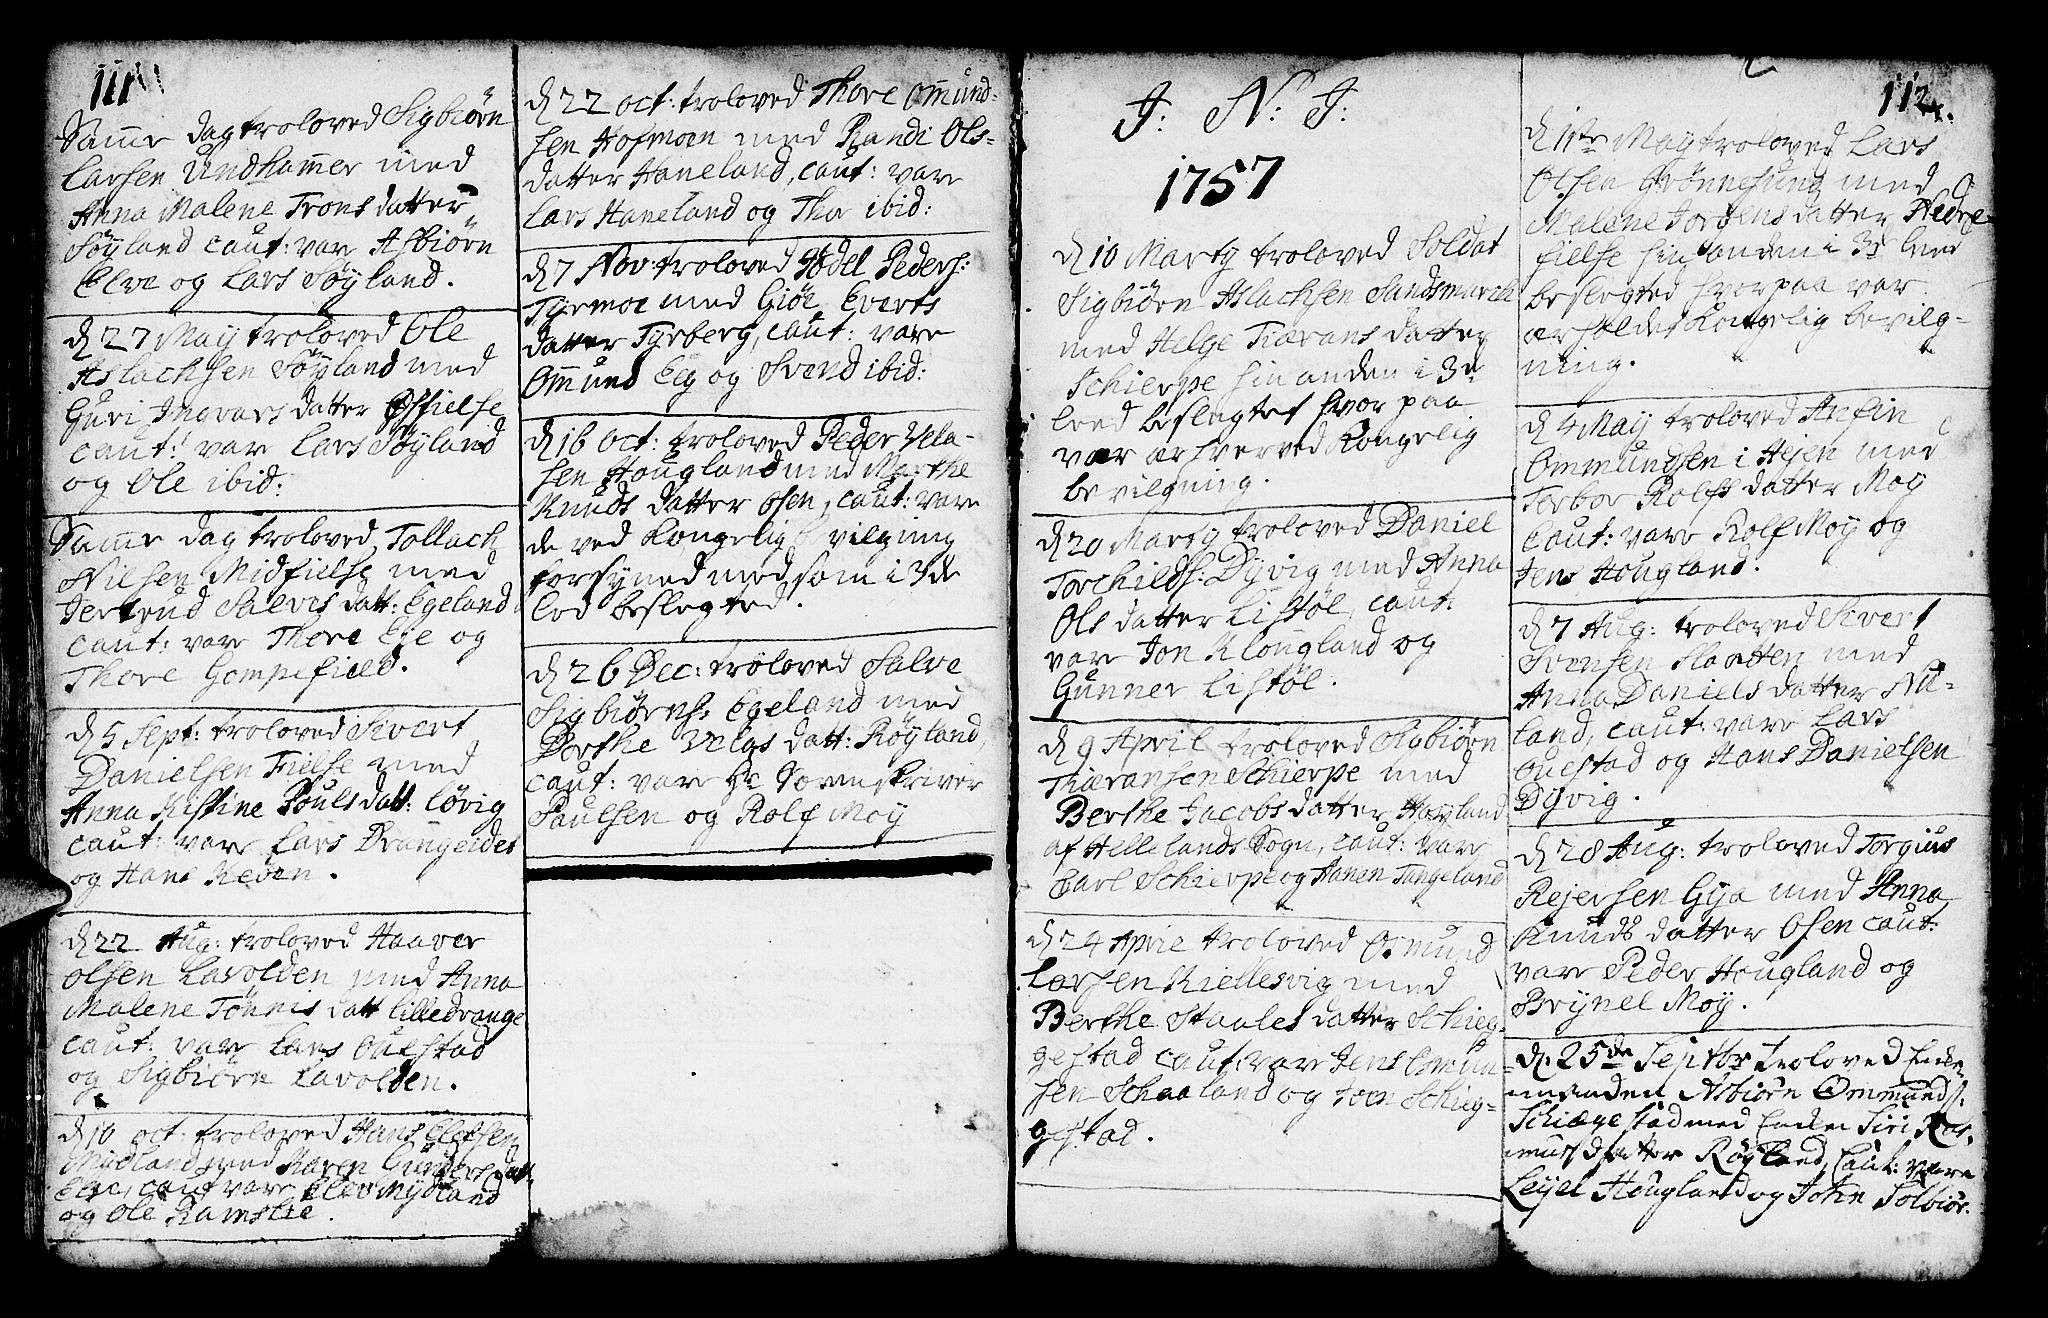 111
Samme dag troloved Sigbiörn
Larsen Undhammer med
Anna Malene Trons datter
Söyland caut: var Asbiörn
Elve og Lars Söyland.
d 27 Maÿ troloved Ole
Aslachsen Söyland med
Guri Ingvars datter Østfielse
caut: var Lars Söyland
og Ole ibid:
Samme dag troloved Tollach
Nilsen Midfielse med
Jertrud Salves datt: Egeland
caut: var Thore Eje og
Thore Gompefield.
d 5 Sept: troloved Sivert
Danielsen Fielse med
Anna Kistine Pouls datt: Lövig
caut: vare Lars Drangeidet
og Hans Reven.
d 22 Aug: troloved Haaver
Olsen Lavolden med Anna
Malene Tönnis datt Lilledrange
caut: var Lars Ouestad
og Sigbiörn Lavolden.
d 10 oct: troloved Hans Elefsen
Mydland med Karen Gunders datt:
Ege, caut vare Elev Mydland
og Ole Ramslie.
d 22 oct: troloved Thore Ommund-
sen Hofmoen med Randi Ols-
datter Haneland, caut: vare
Lars Haneland og Thor ibid:
d 7 Nov: troloved Godel Peders:
Tyrmoe med Giöe Everts
datter Tyrberg, caut: vare
Ommund Eeg og Svend ibid:
d 16 oct: troloved Peder Vela-
sen Hougland med Marthe
Knuds datter Osen, caut: vare
de ved Kongelig bevilgning
forsyned med som i 3de
Led beslegted.
d 26 Dec: troloved Salve
Sigbiörns: Egeland med
Berthe Velgs datt: Röyland
caut: vare Hr Sorenskriver
Paulsen og Rolf Moÿ
J: N: J:
1757
d 10 Marty troloved Soldat
Sigbiörn Aslachsen Sandsmarch
med Helge Tiærans datter
Schierpe sin anden i 3de
Leed beslegted hvor paa
var erhverved Kongelig
bevilgning.
d 20 Marty troloved Daniel
Torchilds: Dÿvig med Anna
Ols datter Listöl, caut:
vare Jon Klougland og
Gunner Listöl.
d 9 April troloved Sigbiörn
Thiæransen Schierpe med
Berthe Jacobs datter Höyland
af Hellelands Sogn, caut: vare
Carl Schierpe og Hanen Tengeland
d 24 April troloved Osmund
Larsen Kiellesvig med
Berthe Staales datter Schieg-
gestad caut: var Jens Osmun-
sen Schaaland og Joen Schieg-
gestad.
112.
d 1ste Maÿ troloved Lars
Olsen Grönnesund med
Malene Jordens datter Nedre
fielse sin anden i 3d Leed
beslegted hvorpaa var
erholdet Kongelig bevilg-
ning.
d 4 Maÿ troloved Anfin
Ommundsen i Hejen med
Torbor Rolfs datter Moÿ
Caut: vare Rolf Moÿ og
Jens Hougland.
d 7 Aug: troloved Sivert
Svensen Slaatten med
Anna Daniels datter Nu-
land, caut: vare Lars
Ouestad og Hans Danielsen
Dÿvig.
d 28 Aug: troloved Torgius
Rejersen Gya med Anna
Knuds datter Osen caut:
vare Peder Hougland og
Brÿnel Moÿ.
d. 25de Septbr troloved Enke
manden Asbiörn Ommunds.
Schiægestad med Enken Siri Ras-
muds datter Röyland, Caut: vare
Leyel Hougland og John Solbiör.